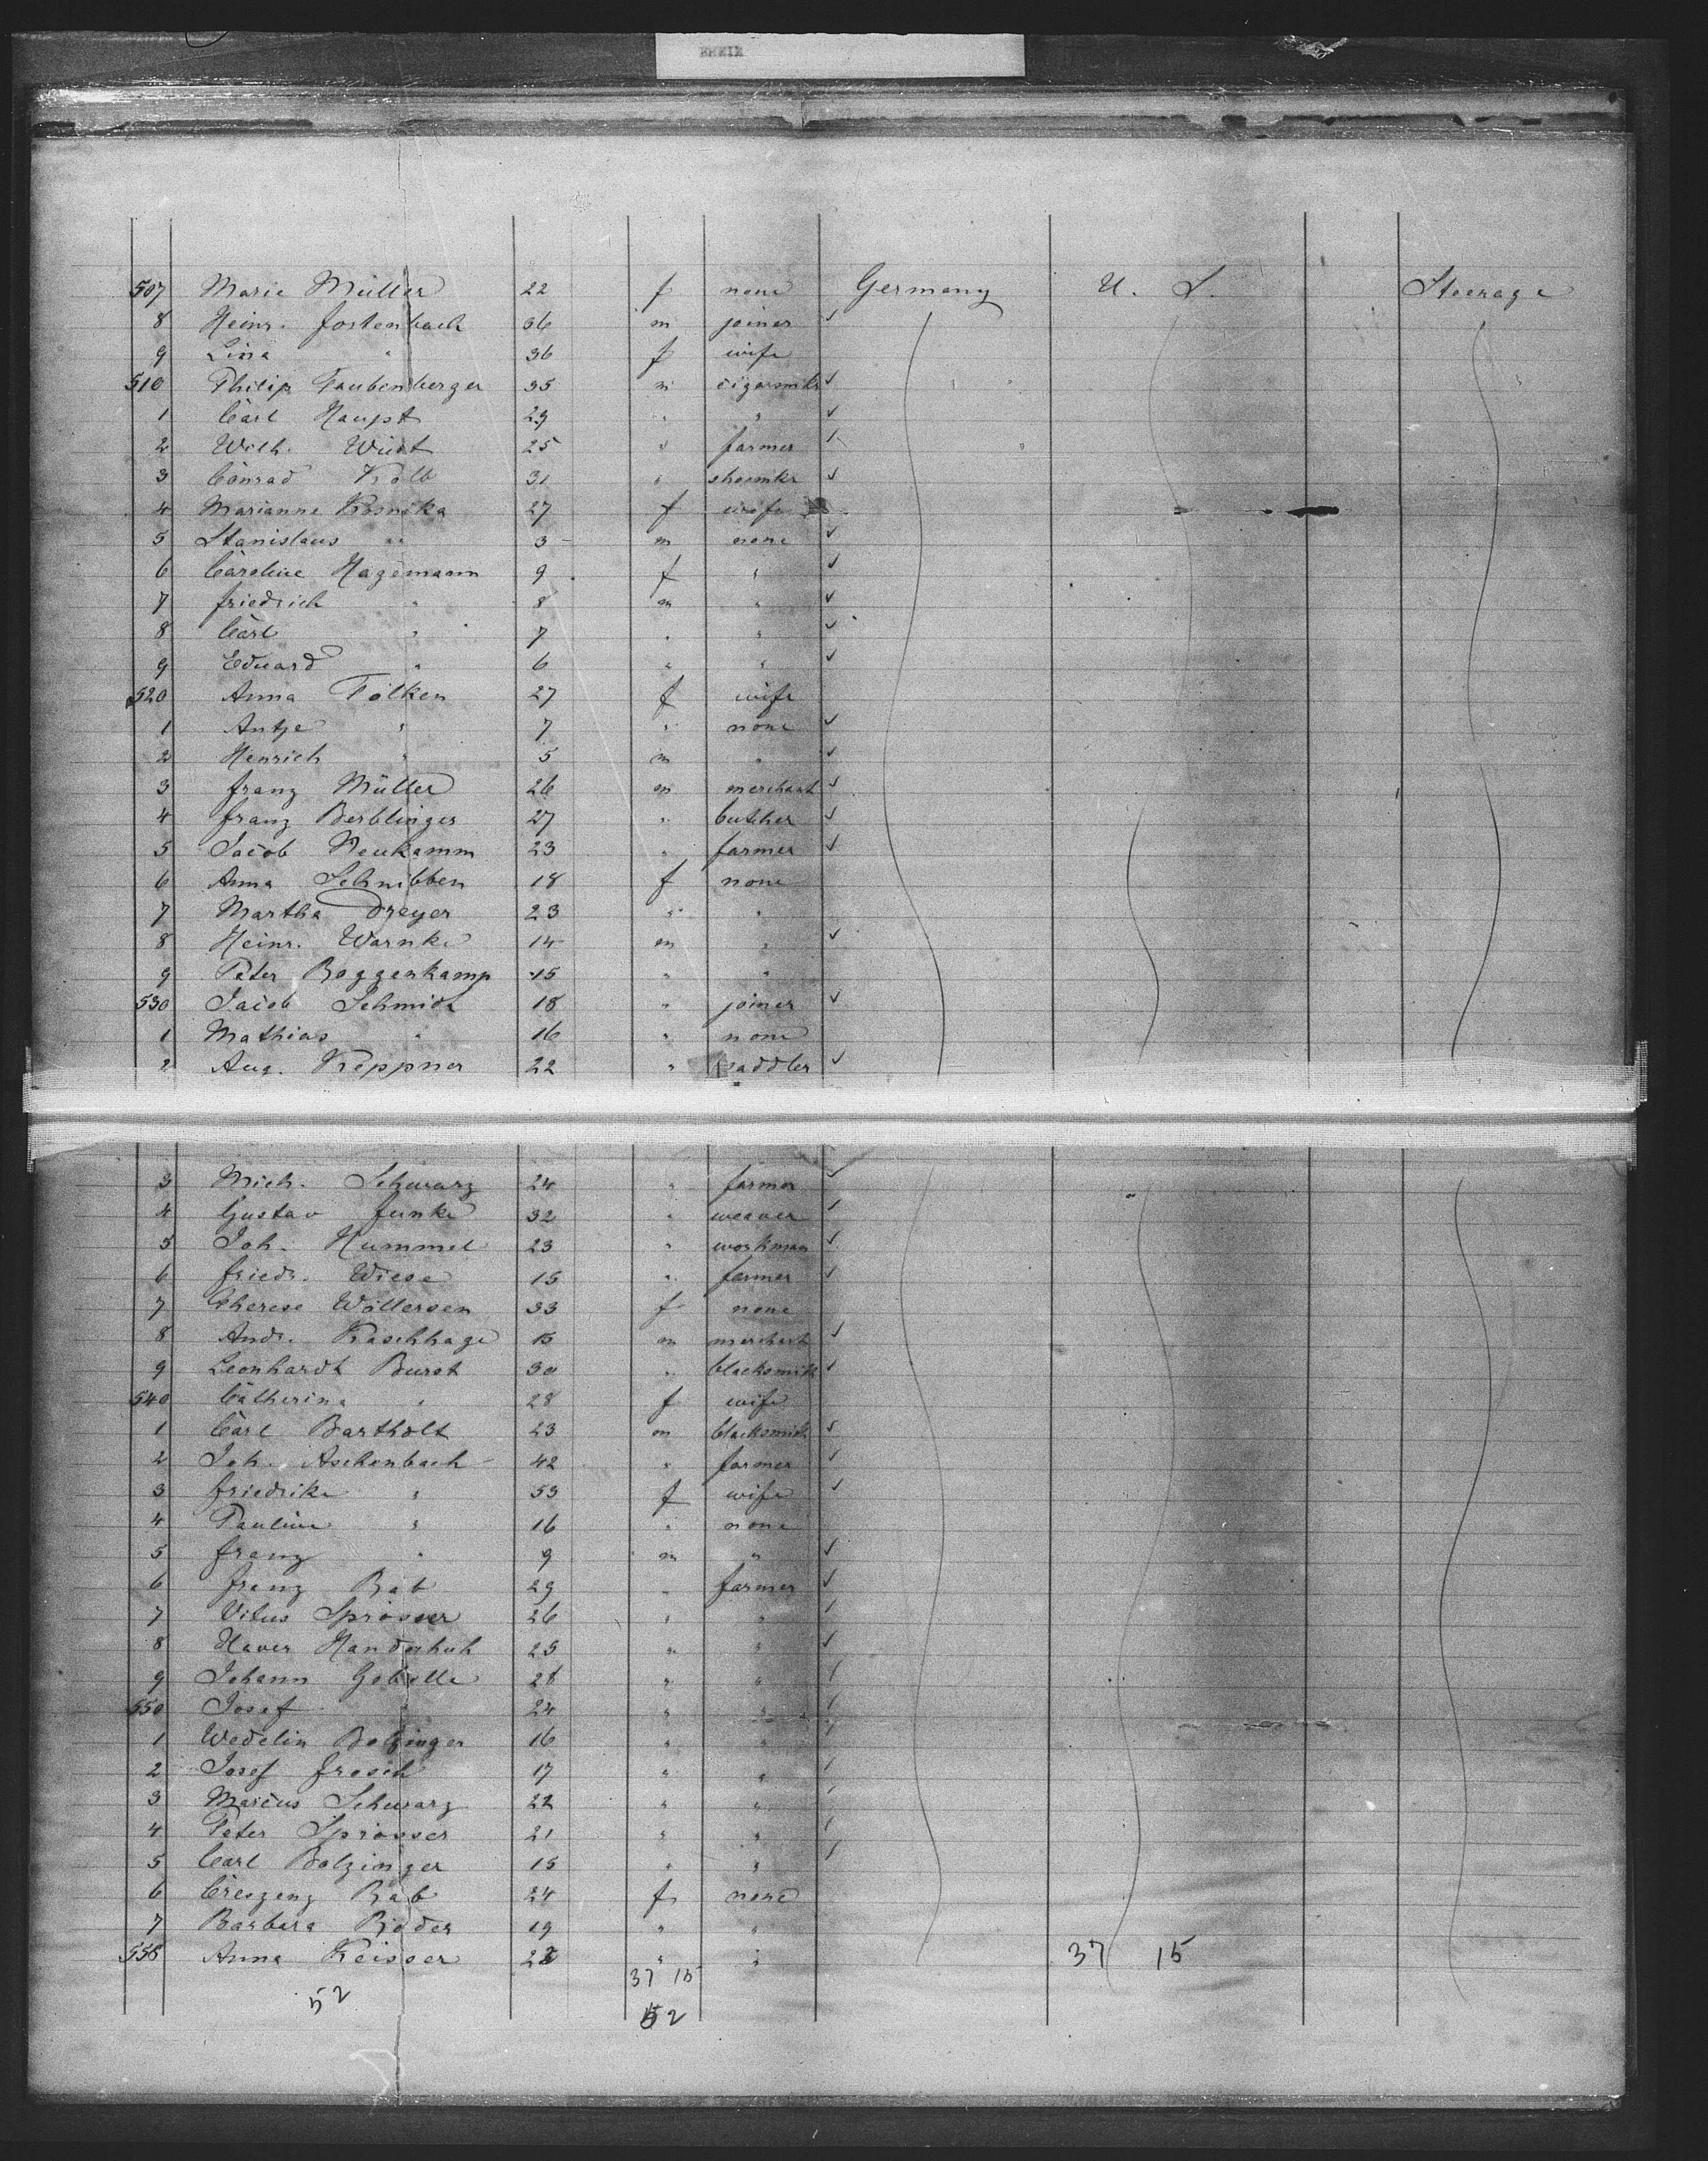 507 Marie Müller 22 f none Germany U. S. Steerage
8 Heinr. Fostenbach 36 m joiner ✓
9 Lina " 36 f wife
510 Philip Taubenberger 35 m cigarmkr ✓
1 Carl Haupt 29 " " ✓
2 Wilh. Würt 25 " farmer ✓
3 Conrad Kolb 31 " shoemkr ✓
4 Marianne 27 f wife
5 Stanislaus " 3 m none ✓
6 Caroline Hagemann 9 f " ✓
7 Friedrich " 8 m " ✓
8 Carl " 7 " " ✓
9 Eduard " 6 " " ✓
520 Anna Tölken 27 f wife
1 Antje " 7 " none ✓
2 Henrich " 5 m " ✓
3 Franz Müller 26 m merchant ✓
4 Franz Berblinger 27 " butcher ✓
5 Jacob Neukamm 23 " farmer ✓
6 Anna Schnibben 18 f none
7 Martha Dreyer 23 " "
8 Heinr. Warnke 14 m " ✓
9 Peter Boggenkamp 15 " "
530 Jacob Schmidt 18 " joiner ✓
1 Mathias " 16 " none
2 Aug. Keppner 22 " saddler ✓
3 Mich. Schwarz 24 " farmer ✓
4 Gustav Funke 32 " weaver ✓
5 Joh. Hummel 23 " workman ✓
6 Friedr. Wiese 15 " farmer ✓
7 Therese Wöllersen 33 f none
8 Andr. Raschhage 15 m merchant ✓
9 Leonhardt Burst 30 " blacksmith ✓
540 Catherina " 28 f wife
1 Carl Bartholt 23 m blacksmith ✓
2 Joh. Aschenbach 42 " farmer ✓
3 Friedrike " 53 f wife ✓
4 Pauline " 16 " none
5 Franz " 9 m " ✓
6 Franz Rab 29 " farmer ✓
7 Vitus Sprösser 26 " " ✓
8 Xaver Handschuh 25 " " ✓
9 Johann Gobelle 28 " " ✓
550 Josef " 24 " " ✓
1 Wedelin Bolzinger 16 " " ✓
2 Josef Frosch 17 " " ✓
3 Marcus Schwarz 22 " " ✓
4 Peter Sprösser 21 " " ✓
5 Carl Bolzinger 15 " " ✓
6 Creszenz Rab 24 f none
7 Barbara 19 " "
558 Anna Keisser 22 " " 37 15
37 15
52 52